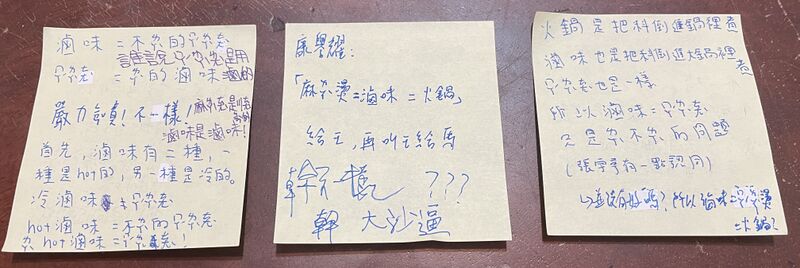 滷味 = 不辣的麻辣燙
誰說麻辣燙是用滷的
麻辣燙 = 辣的滷味
嚴力譴責!不一樣!
滷味是滷味!
首先,滷味有二種,一
種是hot的,另一種是冷的。
冷滷味 ≠ 麻辣燙
hot滷味 = 不辣的麻辣燙
辣hot滷味 = 麻辣燙!
康譽耀:
「麻辣燙 = 滷味 = 火鍋」
???
幹 大沙逼
火鍋是把料倒進鍋裡煮
滷味也是把料倒進鍋裡煮
麻辣燙也是一樣
所以滷味 = 麻辣燙
只是辣不辣的問題
有一點認同)
所以滷味=麻辣燙
=火鍋?